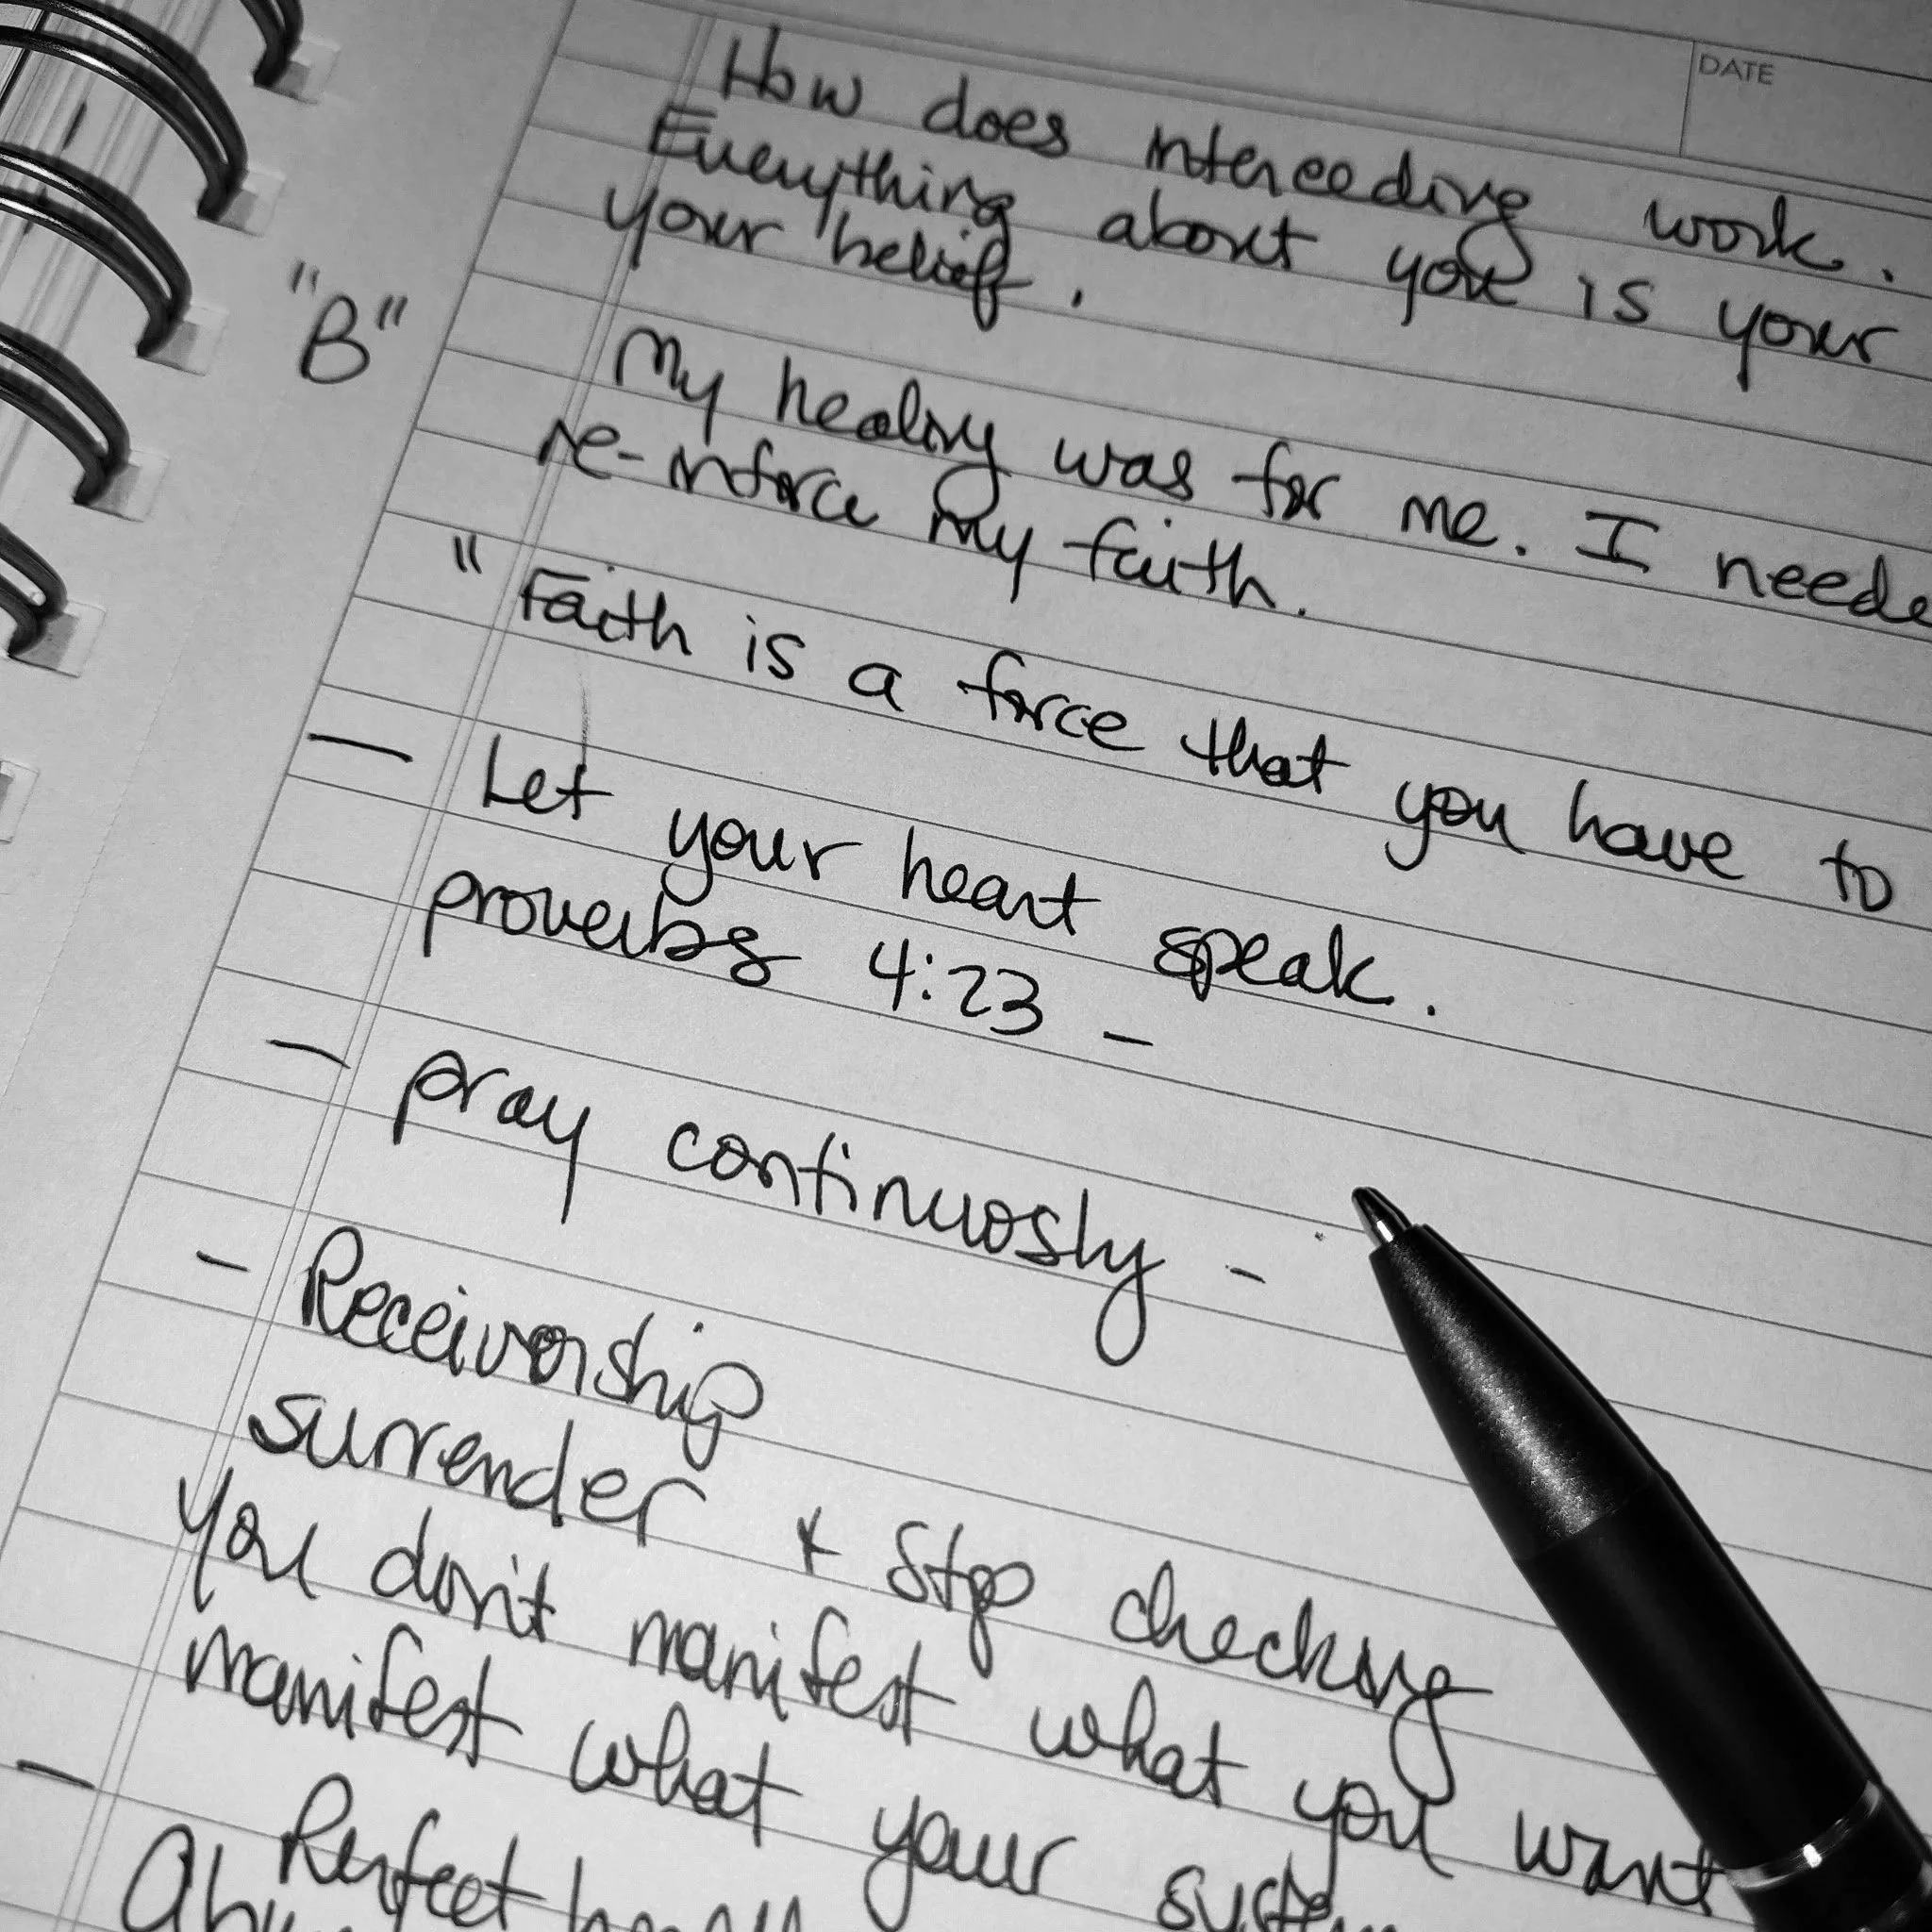 DATE
How does interceeding work.
Everything about you is your
your belief.
"B"
My healing was for me. I neede
re-inforce my faith.
" Faith is a force that you have to
— Let your heart speak.
proverbs 4:23 -
- pray continuosly -
- Receivership
surrender & Stop checking
you don't manifest what you want
manifest what your
- Perfect